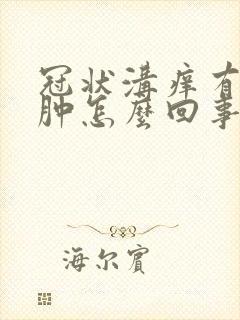 冠状溝痒有
肿怎麼回事
海尔賓